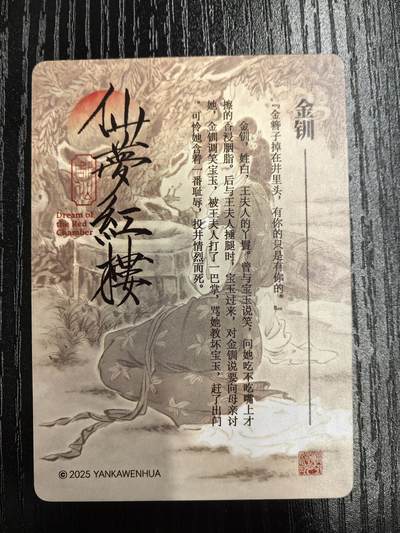 金钏
『金簪子掉在井里头，有你的只是有你的。』
金钏，姓白，王夫人的丫鬟。曾与宝玉说笑，问她吃不吃嘴上才
擦的香浸胭脂。后与王夫人捶腿时，宝玉过来，对金钏说要向母亲讨
她，金钏调笑宝玉，被王夫人打了一巴掌，骂她教坏宝玉，赶了出门
，可怜她含着一番耻辱，投井情烈而死。
仙夢紅樓
Dream of
the Red
Chamber
© 2025 YANKAWENHUA